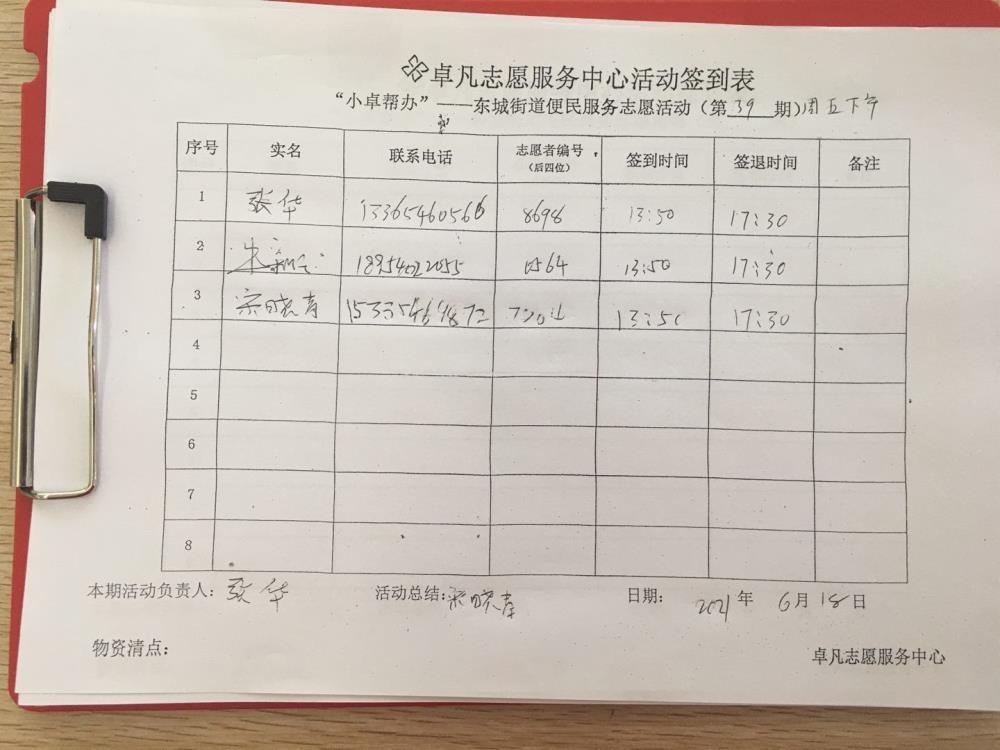 卓凡志愿服务中心活动签到表
“小卓帮办”——东城街道便民服务志愿活动（第39期）周五下午
序号 实名 联系电话 志愿者编号（后四位） 签到时间 签退时间 备注
1 张华 13365460566 8698 13:50 17:30
2 朱 18954022055 0564 13:50 17:30
3 宗晓青 13:50 17:30
4
5
6
7
8
本期活动负责人：张华 活动总结：宗晓青 日期：2021年6月18日
物资清点：
卓凡志愿服务中心